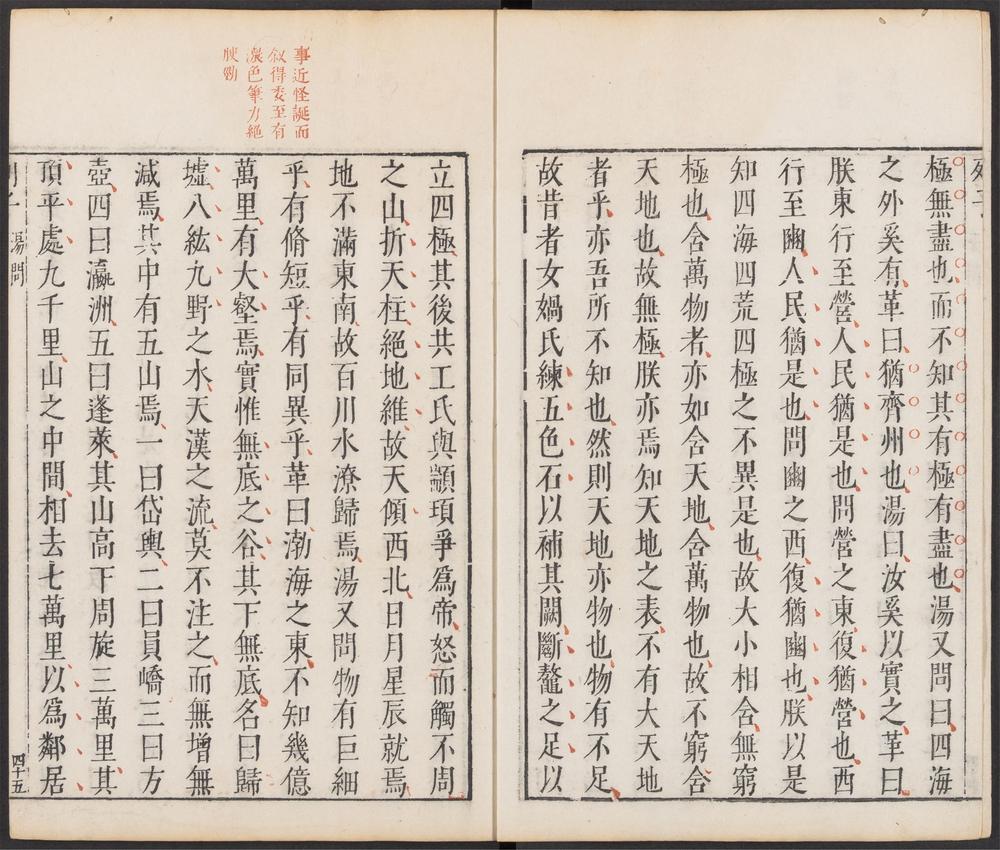 極無盡也而不知其有極有盡也湯又問曰四海
之外奚有革曰猶齊州也湯曰汝奚以實之革曰
朕東行至營人民猶是也問營之東復猶營也西
行至豳人民猶是也問豳之西復猶豳也朕以是
知四海四荒四極之不異是也故大小相含無窮
極也含萬物者亦如含天地含萬物也故不窮含
天地也故無極朕亦焉知天地之表不有大天地
者乎亦吾所不知也然則天地亦物也物有不足
故昔者女媧氏練五色石以補其闕斷鼇之足以
事近怪誕而
叙得委至有
濃色筆力絕
腴勁
立四極其後共工氏與顓頊爭爲帝怒而觸不周
之山折天柱絕地維故天傾西北日月星辰就焉
地不滿東南故百川水潦歸焉湯又問物有巨細
乎有脩短乎有同異乎革曰渤海之東不知幾億
萬里有大壑焉實惟無底之谷其下無底名曰歸
墟八紘九野之水天漢之流莫不注之而無增無
減焉其中有五山焉一曰岱輿二曰員嶠三曰方
壺四曰瀛洲五曰蓬萊其山高下周旋三萬里其
頂平處九千里山之中間相去七萬里以爲鄰居
湯問
四十五